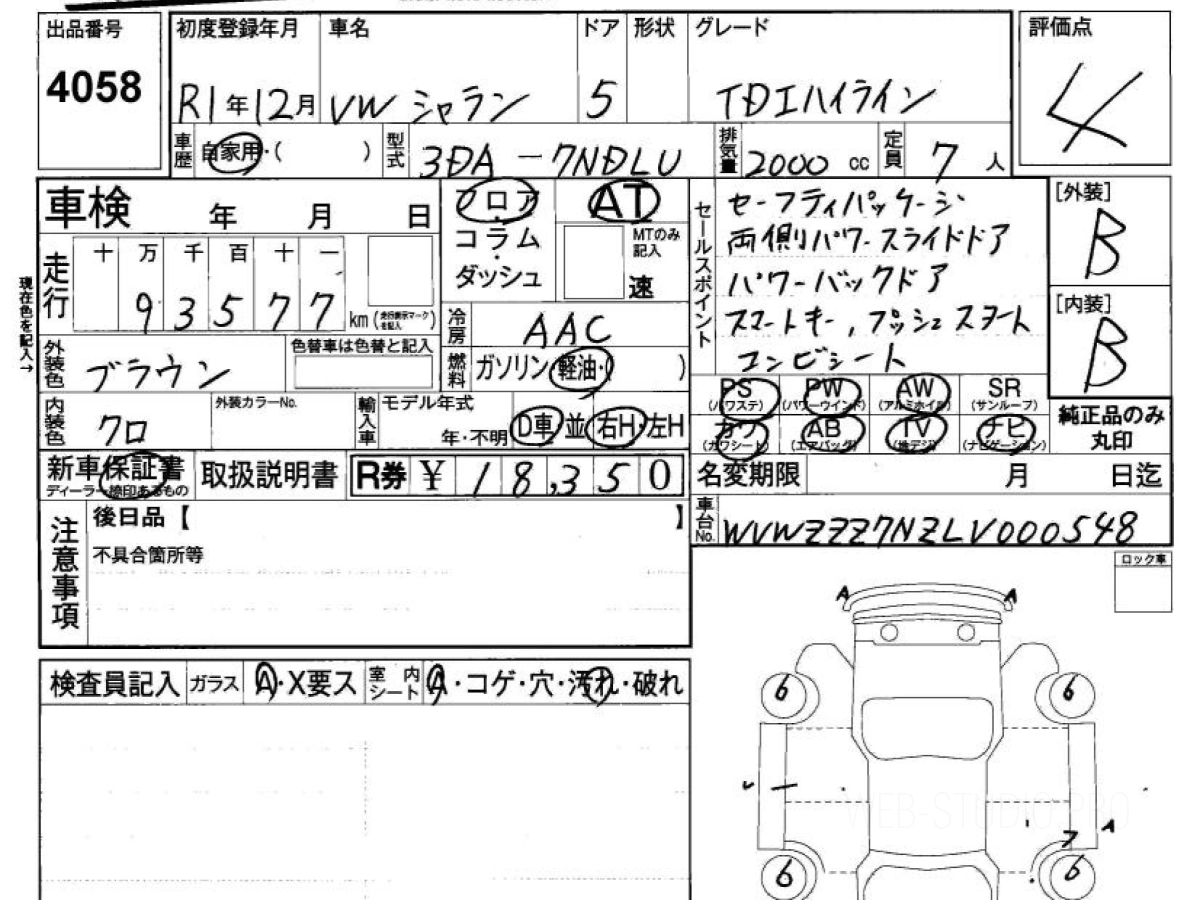 出品番号 初度登録年月 車名 ドア 形状 グレード 評価点
4058 R1年12月 VW シャラン 5 TDIハイライン 4
車歴 自家用・( ) 型式 3DA-7NDLU 排気量 2000 cc 定員 7 人
車検 年 月 日
フロア・コラム・ダッシュ
AT
MTのみ記入
速
セールスポイント
セーフティパッケージ
両側パワースライドドア
パワーバックドア
スマートキー,プッシュスタート
コンビシート
[外装]
B
[内装]
B
現在色を記入→
走行 十 万 千 百 十 一
93577 km (走行表示マークを記入)
冷房 AAC
燃料 ガソリン・軽油・( )
外装色 ブラウン 色替車は色替と記入
内装色 クロ 外装カラーNo.
輸入車 モデル年式 年・不明 D車 並 右H・左H
PS (パワステ) PW (パワーウインド) AW (アルミホイル) SR (サンルーフ)
カワ (カワシート) AB (エアバッグ) TV (地デジ) ナビ (ナビゲーション)
純正品のみ丸印
新車保証書 取扱説明書 R券 ¥18,350
ディーラー捺印あるもの
名変期限 月 日迄
注意事項 後日品【 】
不具合箇所等
車台No. WVWZZZ7NZLV000548
ロック車
検査員記入 ガラス A・X要ス 室内シート A・コゲ・穴・汚れ・破れ
A A
6 6
A
7
6 6
WEB-STUDIO.PRO